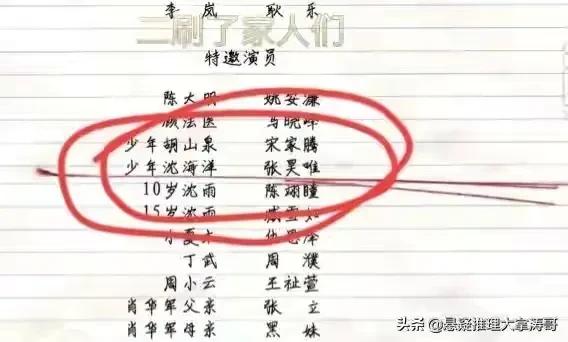 李岚 耿乐
二刷了家人们
特邀演员
陈大明 姚安濂
法医 马晓峰
少年胡山泉 宋家腾
少年沈海洋 张昊唯
10岁沈雨 陈翊曈
15岁沈雨
小夏
丁武 周濮
周小云 王祉萱
肖华军父亲 张立
肖华军母亲 黑妹
头条 @悬疑推理大拿涛哥